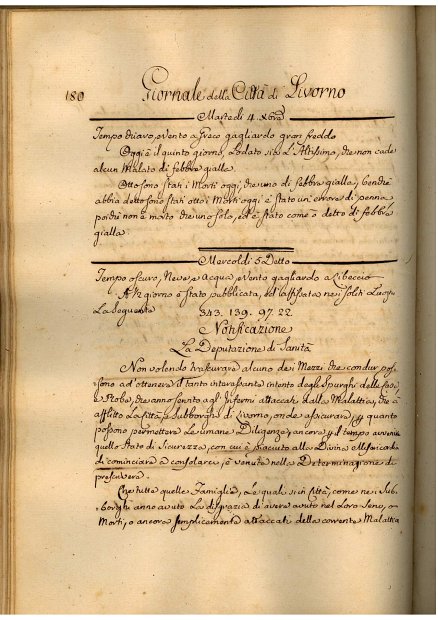 180 Giornale della Città di Livorno
Martedì 4 Xbre
Tempo chiaro, e Vento a Greco gagliardo gran freddo
Oggi è il quinto giorno, Lodato sia L'Altissimo, che non cade
alcun Malato di febbre gialla.
Otto sono stati i Morti oggi, che uno di febbre gialla, benchè
abbia detto sono stati otto i Morti oggi è stato un'errore di penna
poichè non è morto che uno solo, ed è stato come o detto di febbre
gialla.
Mercoldì 5 Detto
Tempo oscuro, Neve, e acqua, e Vento gagliardo a Libeccio
giorno è stato pubblicata, ed affissata nei soliti Luoghi
La Seguente 343. 139. 97. 22
Notificazione
La Deputazione di Sanità
Non volendo trascurare alcuno dei Mezzi che condur pos-
sono ad ottenere il tanto interessante intento degli Spurghi delle
e Robe, che anno servito agl' Infermi attaccati dalla Malattia, che à
afflitto La Città, e Subborghi di Livorno, onde assicurare, quanto
possono permettere Le umane Diligenze, ancora il tempo avvenire
quello Stato di Sicurezza, con cui è piaciuto alla Divina Misericordia
di cominciare a consolarci, è venuta nella Determinazione di
prescrivere
Che tutte quelle Famiglie, le quali sì in Città, come nei Sub-
borghi anno avuto La disgrazia di avere avuto nel Loro Seno, o
Morti, o ancora semplicemente attaccati della corrente Malattia